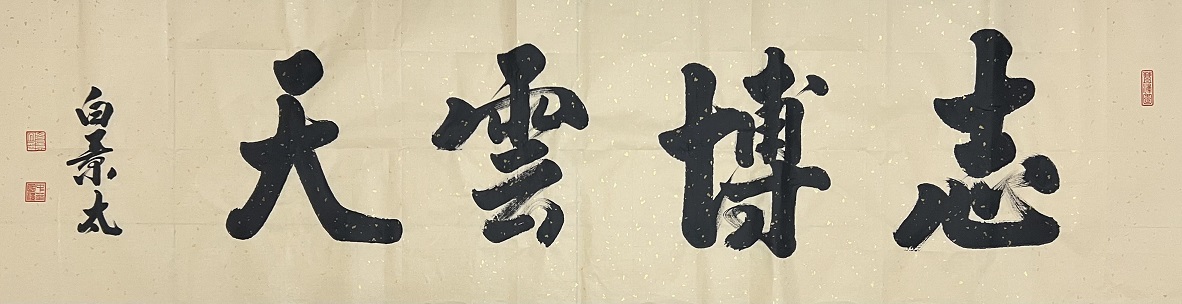 志博雲天
白景太